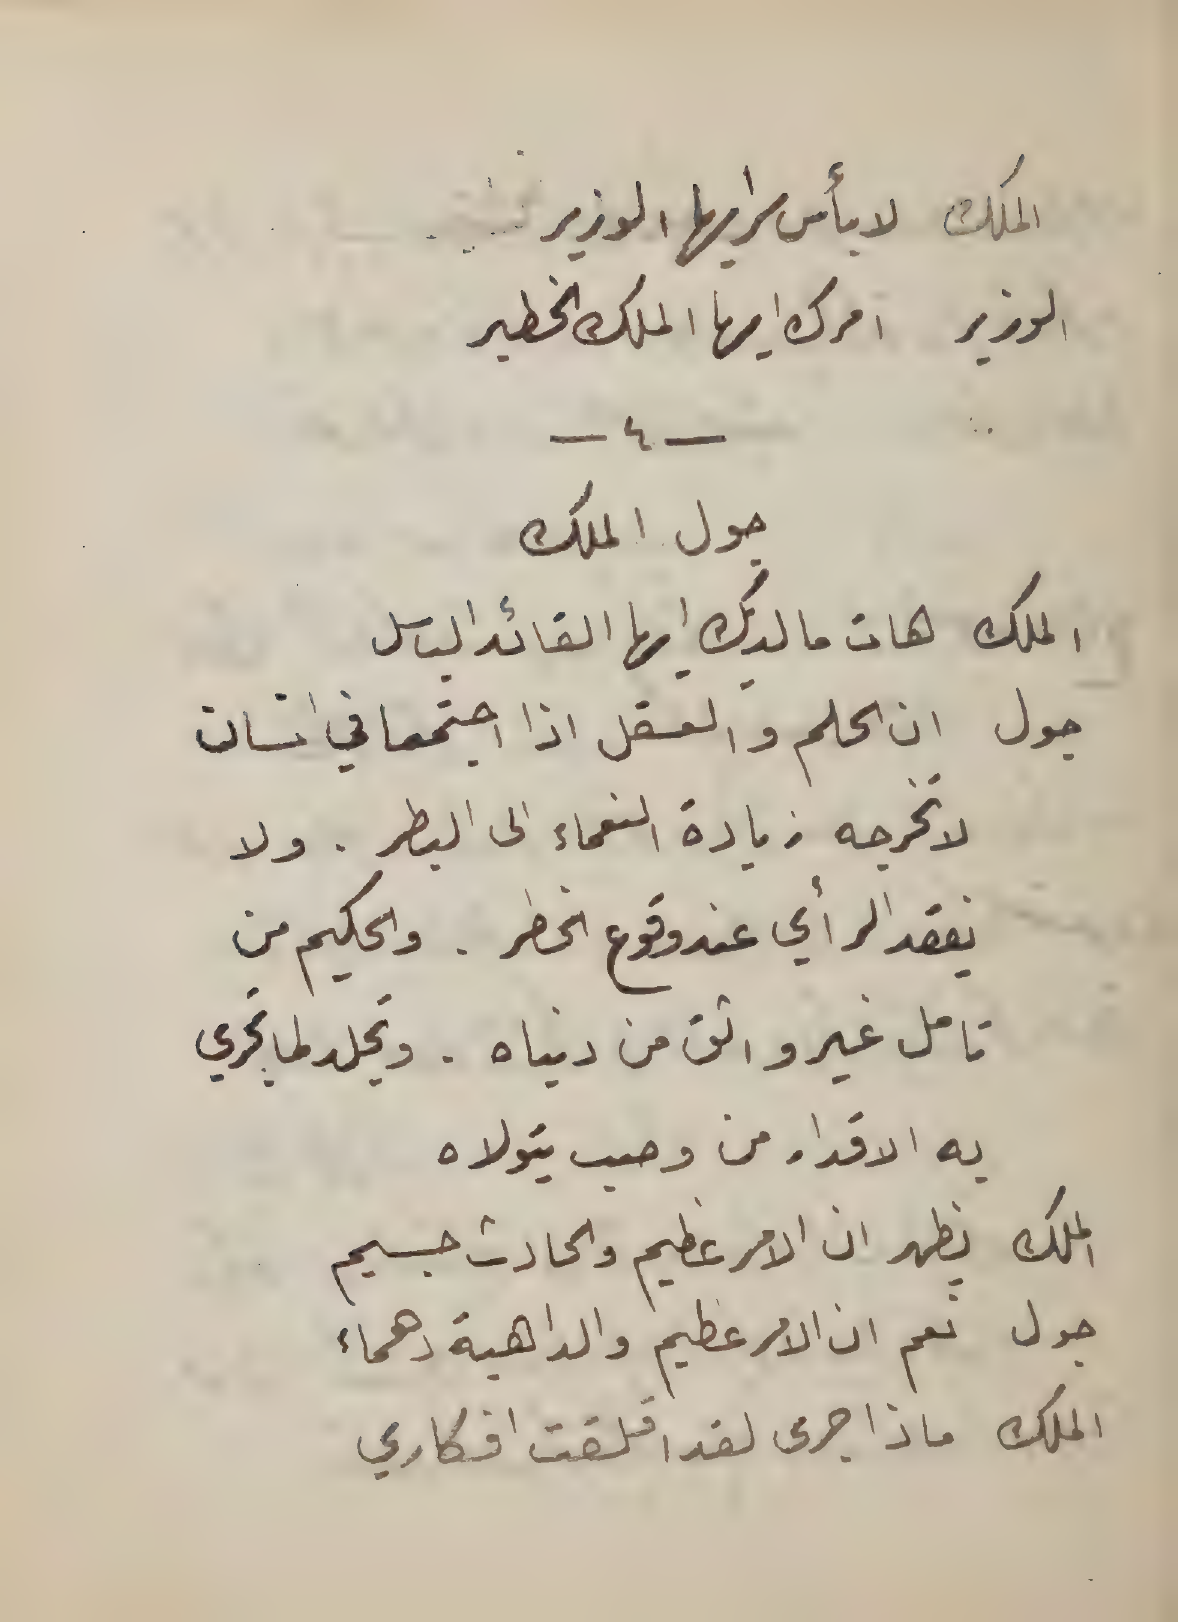 الملك لا بأس سر ايها الوزير
الوزير امرك ايها الملك الخطير
— ٤ —
جول الملك
الملك هات ما لديك ايها القائد الباسل
جول ان الحلم والعقل اذا اجتمعا في انسان
لا تخرجه زيادة النعماء الى البطر . ولا
يفقد الرأي عند وقوع الخطر . والحكيم من
تامل غير واثق من دنياه . وتجلد لما تجري
به الاقدار من وصب يتولاه
الملك يظهر ان الامر عظيم والحادث جسيم
جول نعم ان الامر عظيم والداهية دهماء
الملك ماذا جرى لقد اقلقت افكاري